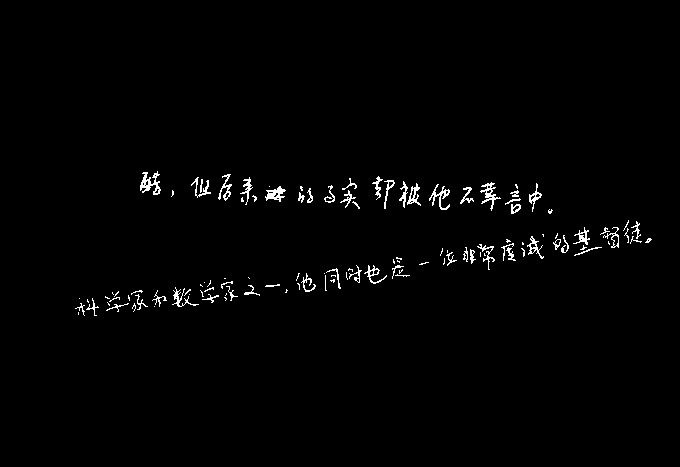 醒，但后来的事实却被他不幸言中。
科学家和数学家之一，他同时也是一位非常虔诚的基督徒。